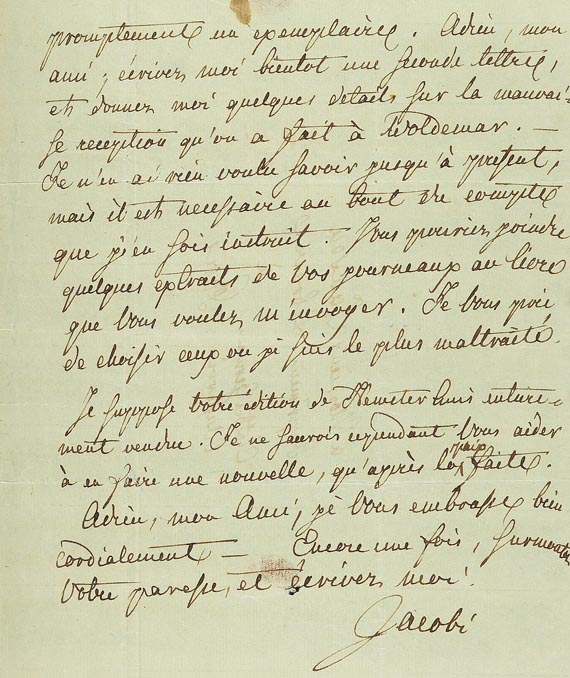 promptement un exemplaire. Adieu, mon
ami; écrivez moi bientot une seconde lettre,
et donnez moi quelques details sur la mauvai-
se reception qu'on a fait à Woldemar. —
Je n'en ai rien voulu savoir jusqu'à present,
mais il est necessaire au bout du compte
que j'en sois instruit. Vous pourriez joindre
quelques extraits de vos journeaux au livre
que vous voulez m'envoyer. Je vous prie
de choisir ceux ou je suis le plus maltraité.
Je suppose votre édition de Hemsterhuis entiere-
ment vendue. Je ne saurois cependant vous aider
à en faire une nouvelle, qu'après la paix faite.
Adieu, mon Ami, je vous embrasse bien
cordialement — Encore une fois, surmontez
votre paresse, et écrivez moi!
Jacobi